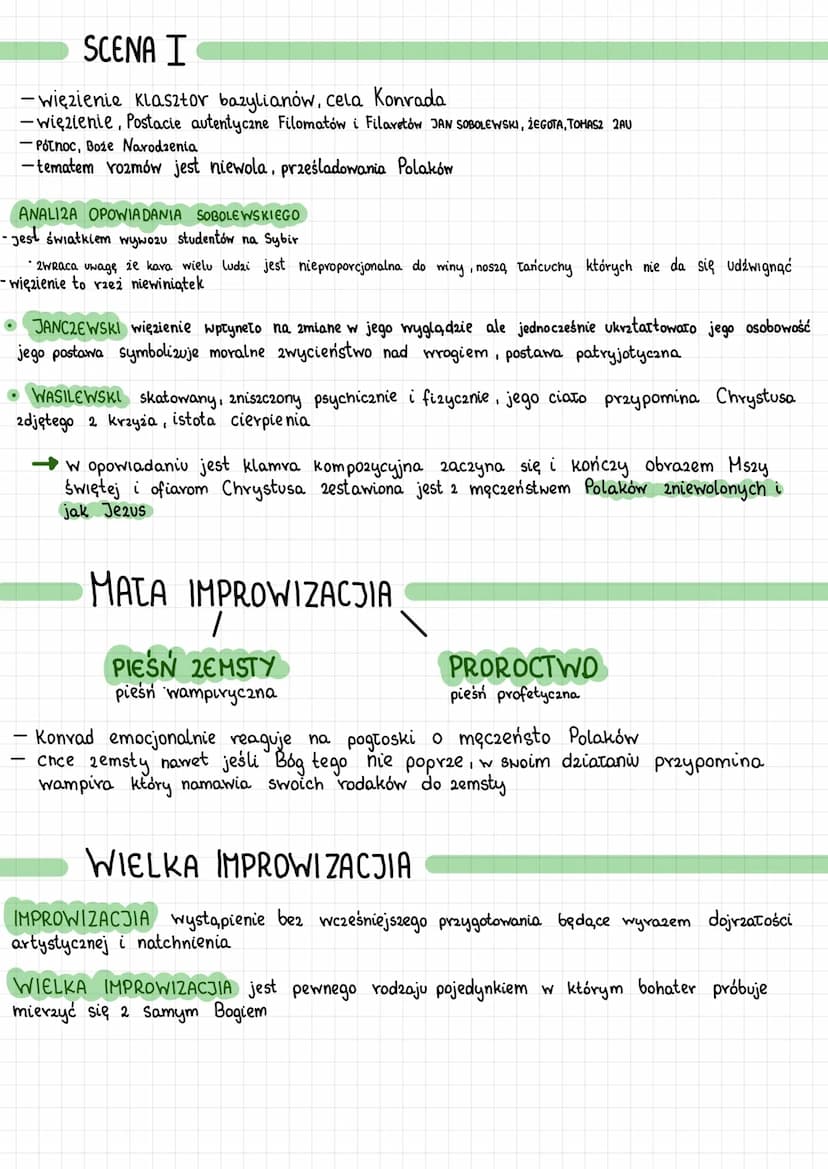 SCENA I
- więzienie klasztor bazylianów, cela Konrada
- więzienie, Postacie autentyczne Filomatów i Filaretów JAN SOBOLEWSKI, ŻEGOTA, TOMASZ ZAU
- Północ, Boże Narodzenia
- tematem rozmów jest niewola, prześladowania Polaków
ANALIZA OPOWIADANIA SOBOLEWSKIEGO
- jest światkiem wywozu studentów na Sybir
· zwraca uwagę że kara wielu ludzi jest nieproporcjonalna do winy, noszą łańcuchy których nie da się udźwignąć
- więzienie to rzeź niewiniątek
• JANCZEWSKI więzienie wpłyneło na zmiane w jego wyglądzie ale jednocześnie ukrztałtowało jego osobowość
jego postawa symbolizuje moralne zwycieństwo nad wrogiem, postawa patryjotyczna
• WASILEWSKI skatowany, zniszczony psychicznie i fizycznie, jego ciało przypomina Chrystusa
zdjętego z krzyża, istota cierpienia
→ w opowiadaniu jest klamra kompozycyjna zaczyna się i kończy obrazem Mszy
świętej i ofiarom Chrystusa zestawiona jest z męczeństwem Polaków zniewolonych i
jak Jezus
MAŁA IMPROWIZACJIA
PIEŚŃ ZEMSTY PROROCTWO
pieśń wampiryczna pieśń profetyczna
- Konrad emocjonalnie reaguje na pogłoski o męczeństo Polaków
- chce zemsty nawet jeśli Bóg tego nie poprze, w swoim działaniu przypomina
wampira który namawia swoich rodaków do zemsty
WIELKA IMPROWIZACJIA
IMPROWIZACJIA wystąpienie bez wcześniejszego przygotowania będące wyrazem dojrzałości
artystycznej i natchnienia
WIELKA IMPROWIZACJIA jest pewnego rodzaju pojedynkiem w którym bohater próbuje
mierzyć się z samym Bogiem